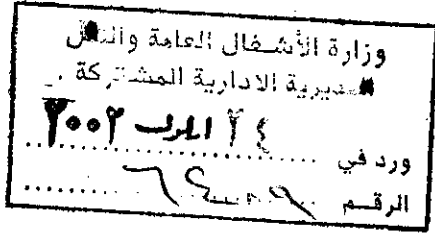 وزارة الأشغال العامة والنقل
المديرية الادارية المشتركة
ورد في ٢٤ ايلول ٢٠٠٢
الرقم